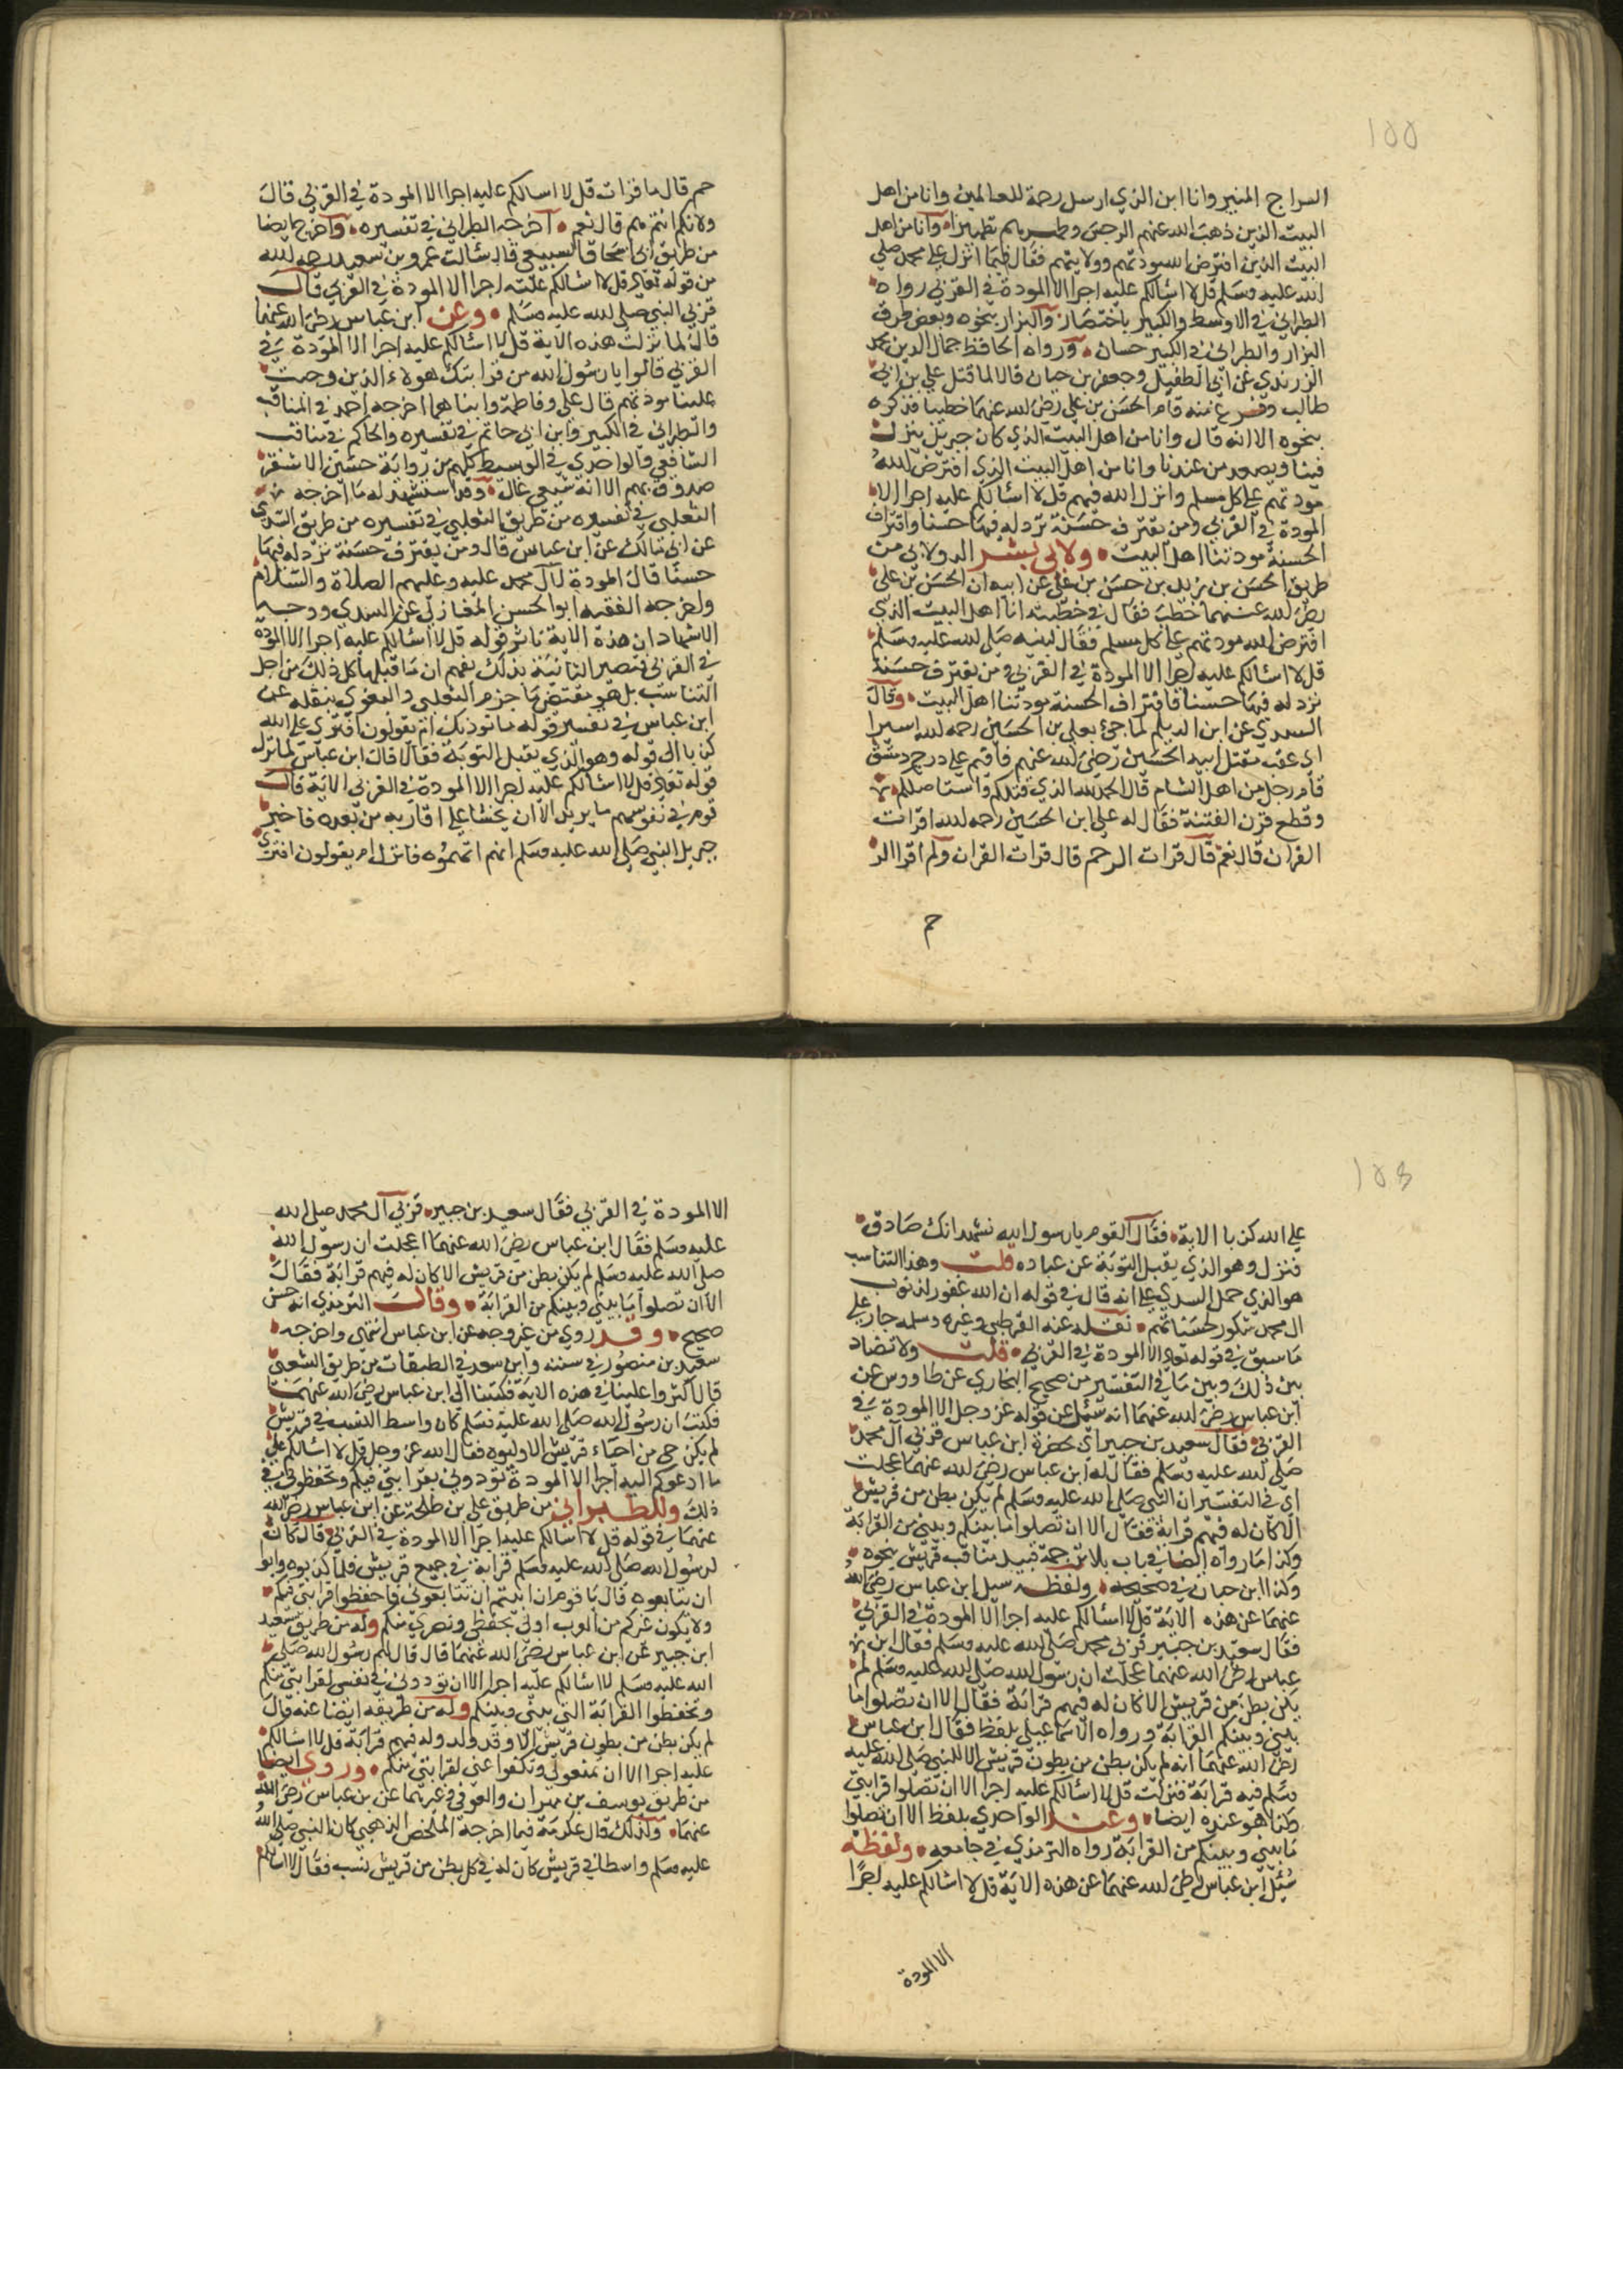 ١٥٥
السراج المنير وانا ابن الذي ارسل رحمة للعالمين وانا من اهل
البيت الذين ذهب الله عنهم الرجس وطهرهم تطهيرا وانا من اهل
البيت الذين افترض الله مودتهم وولايتهم فقال فيما انزل على محمد صلى
الله عليه وسلم قل لا اسالكم عليه اجرا الا المودة في القربى رواه
الطبراني في الاوسط والكبير باختصار والبزار بنحوه وبعض طرق
البزار والطبراني في الكبير حسان ورواه الحافظ جمال الدين محمد
الزرندي عن ابي الطفيل وجعفر بن حيان قالا لما قتل علي بن ابي
طالب وفرغ منه قام الحسن بن علي رضي الله عنهما خطيبا فذكره
بنحوه الا انه قال وانا من اهل البيت الذي كان جبريل ينزل
فينا ويصعد من عندنا وانا من اهل البيت الذي افترض الله
مودتهم على كل مسلم وانزل الله فيهم قل لا اسالكم عليه اجرا الا
المودة في القربى ومن يقترف حسنة نزد له فيها حسنا واقتراف
الحسنة مودتنا اهل البيت ولابي بشر الدولابي من
طريق الحسن بن زيد بن حسن بن علي عن ابيه ان الحسن بن علي
رضي الله عنهما خطب فقال في خطبته انا اهل البيت الذي
افترض الله مودتهم على كل مسلم فقال لنبيه صلى الله عليه وسلم
قل لا اسالكم عليه اجرا الا المودة في القربى ومن يقترف حسنة
نزد له فيها حسنا فاقتراف الحسنة مودتنا اهل البيت وقال
السدي عن ابن الديلم لما جئ بعلي بن الحسين رحمه الله اسيرا
اي عقب مقتل ابيه الحسين رضي الله عنهم فاقيم على درج دمشق
قام رجل من اهل الشام قال الحمد لله الذي قتلكم واستاصلكم
وقطع قرن الفتنة فقال له علي ابن الحسين رحمه الله اقرات
القران قال نعم قال قرات ال حم قال قرات القران ولم اقرا ال
حم
حم قال ما قرات قل لا اسالكم عليه اجرا الا المودة في القربى قال
ولانكم انتم هم قال نعم اخرجه الطبراني في تفسيره واخرج ايضا
من طريق ابي اسحاق السبيعي قال سالت عمرو بن سعيد رحمه الله
من قوله تعالى قل لا اسالكم عليه اجرا الا المودة في القربى قال
قربى النبي صلى الله عليه وسلم وعن ابن عباس رضي الله عنهما
قال لما نزلت هذه الاية قل لا اسالكم عليه اجرا الا المودة في
القربى قالوا يا رسول الله من قرابتك هولاء الذين وجبت
علينا مودتهم قال علي وفاطمة وابناهما اخرجه احمد في المناقب
والطبراني في الكبير وابن ابي حاتم في تفسيره والحاكم في مناقب
الشافعي والواحدي في الوسيط كلهم من رواية حسين الاشقر
صدوق يهم الا انه شيعي غال وقد استشهد له ما اخرجه
الثعلبي في تفسيره من طريق الثعلبي في تفسيره من طريق السدي
عن ابي مالك عن ابن عباس قال ومن يقترف حسنة نزد له فيها
حسنا قال المودة لال محمد عليه وعليهم الصلاة والسلام
واخرجه الفقيه ابو الحسن المغازلي عن السدي ووجه
الاشهاد ان هذه الاية قوله قل لا اسالكم عليه اجرا الا المودة
في القربى بذلك يفهم ان ما قبلها كل ذلك من اجل
التناسب بل هو مقتضى ما جزم الثعلبي والبغوي بنقله عن
ابن عباس في تفسير قوله ام يقولون افترى على الله
كذبا الى قوله وهو الذي يقبل التوبة فقالا قال ابن عباس لما نزل
قوله تعالى قل لا اسالكم عليه اجرا الا المودة في القربى الاية قال
قوم في نفوسهم ما يريد الا ان يحثنا على اقاربه من بعده فاخبر
جبريل النبي صلى الله عليه وسلم انهم اتهموه فانزل ام يقولون افترى
على الله كذبا الاية فقال القوم يا رسول الله نشهد انك صادق
فنزل وهو الذي يقبل التوبة عن عباده قلت وهذا التناسب
هو الذي حمل السدي على انه قال في قوله ان الله غفور لذنوب
ال محمد شكور لحسناتهم نقله عنه القرطبي وغيره جار على
ما سبق في قوله تعالى الا المودة في القربى قلت ولا تضاد
بين ذلك وبين ما في التفسير من صحيح البخاري عن طاووس عن
ابن عباس رضي الله عنهما انه سئل عن قوله عز وجل الا المودة في
القربى فقال سعيد بن جبير اي بحضرة ابن عباس قربى آل محمد
صلى الله عليه وسلم فقال له ابن عباس رضي الله عنهما عجلت
اي في التفسير ان النبي صلى الله عليه وسلم لم يكن بطن من قريش
الا كان له فيهم قرابة فقال الا ان تصلوا ما بينكم وبيني من القرابة
وكذا ما رواه ايضا في باب بلا ترجمة قبيل مناقب قريش بنحوه
وكذا ابن حبان في صحيحه ولفظه سيل ابن عباس رضي الله
عنهما عن هذه الاية قل لا اسالكم عليه اجرا الا المودة في القربى
فقال سعيد بن جبير قربى محمد صلى الله عليه وسلم فقال ابن
عباس رضي الله عنهما عجلت ان رسول الله صلى الله عليه وسلم لم
يكن بطن من قريش الا كان له فيهم قرابة فقال الا ان تصلوا ما
بيني وبينكم القرابة ورواه الاسماعيلي بلفظ فقال ابن عباس
رضي الله عنهما انه لم يكن بطن من بطون قريش الا للنبي صلى الله عليه
وسلم فيه قرابة فنزلت قل لا اسالكم عليه اجرا الا ان تصلوا قرابتي
هو عنده ايضا وعند الواحدي بلفظ الا ان تصلوا
ما بيني وبينكم من القرابة رواه الترمذي في جامعه ولفظه
سئل ابن عباس رضي الله عنهما عن هذه الاية قل لا اسالكم عليه اجرا
الا المودة
الا المودة في القربى فقال سعيد بن جبير قربى آل محمد صلى الله
عليه وسلم فقال ابن عباس رضي الله عنهما اعجلت ان رسول الله
صلى الله عليه وسلم لم يكن بطن من قريش الا كان له فيهم قرابة فقال
الا ان تصلوا ما بيني وبينكم من القرابة وقال الترمذي انه حسن
صحيح وقد روي من غير وجه عن ابن عباس انتهى واخرجه
سعيد بن منصور في سننه وابن سعد في الطبقات من طريق الشعبي
قال اكثروا علينا في هذه الاية فكتبنا الى ابن عباس رضي الله عنهما
فكتب ان رسول الله صلى الله عليه وسلم كان واسط النسب في قريش
لم يكن حي من احياء قريش الا ولدوه فقال الله عز وجل قل لا اسالكم على
ما ادعوكم اليه اجرا الا المودة تودوني بقرابتي فيكم وتحفظوني في
ذلك وللطبراني من طريق علي بن طلحة عن ابن عباس رضي الله
عنهما في قوله قل لا اسالكم عليه اجرا الا المودة في القربى قال كان
لرسول الله صلى الله عليه وسلم قرابة في جميع قريش فلما كذبوه وابو
ان يتابعوه قال يا قوم ان ابيتم ان تتابعوني فاحفظوا قرابتي فيكم
ولا يكون غيركم من العرب اولى بحفظي ونصرتي منكم وله من طريق سعيد
ابن جبير عن ابن عباس رضي الله عنهما قال قال لهم رسول الله صلى
الله عليه وسلم لا اسالكم عليه اجرا الا ان تودوني في نفسي لقرابتي منكم
وتحفظوا القرابة التي بيني وبينكم وله من طريقه ايضا عنه قال
لم يكن بطن من بطون قريش الا وقد ولد وله فيهم قرابة قل لا اسالكم
عليه اجرا الا ان تمنعوني وتكفوا عني لقرابتي منكم وروى ايضا
من طريق يوسف بن مهران والعوفي وغيرهما عن بن عباس رضي الله
عنهما وكذلك قال عكرمة فيما اخرجه المخلص الذهبي كان النبي صلى الله
عليه وسلم واسطا في قريش كان له في كل بطن من قريش نسب فقال لا اسالكم